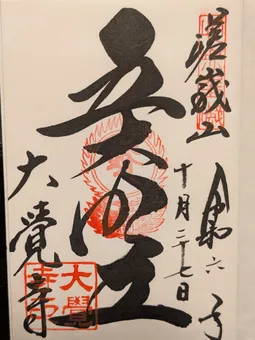 嵯峨山
令和六年
十月二十七日
五大明王
大覺寺
大覺
寺印